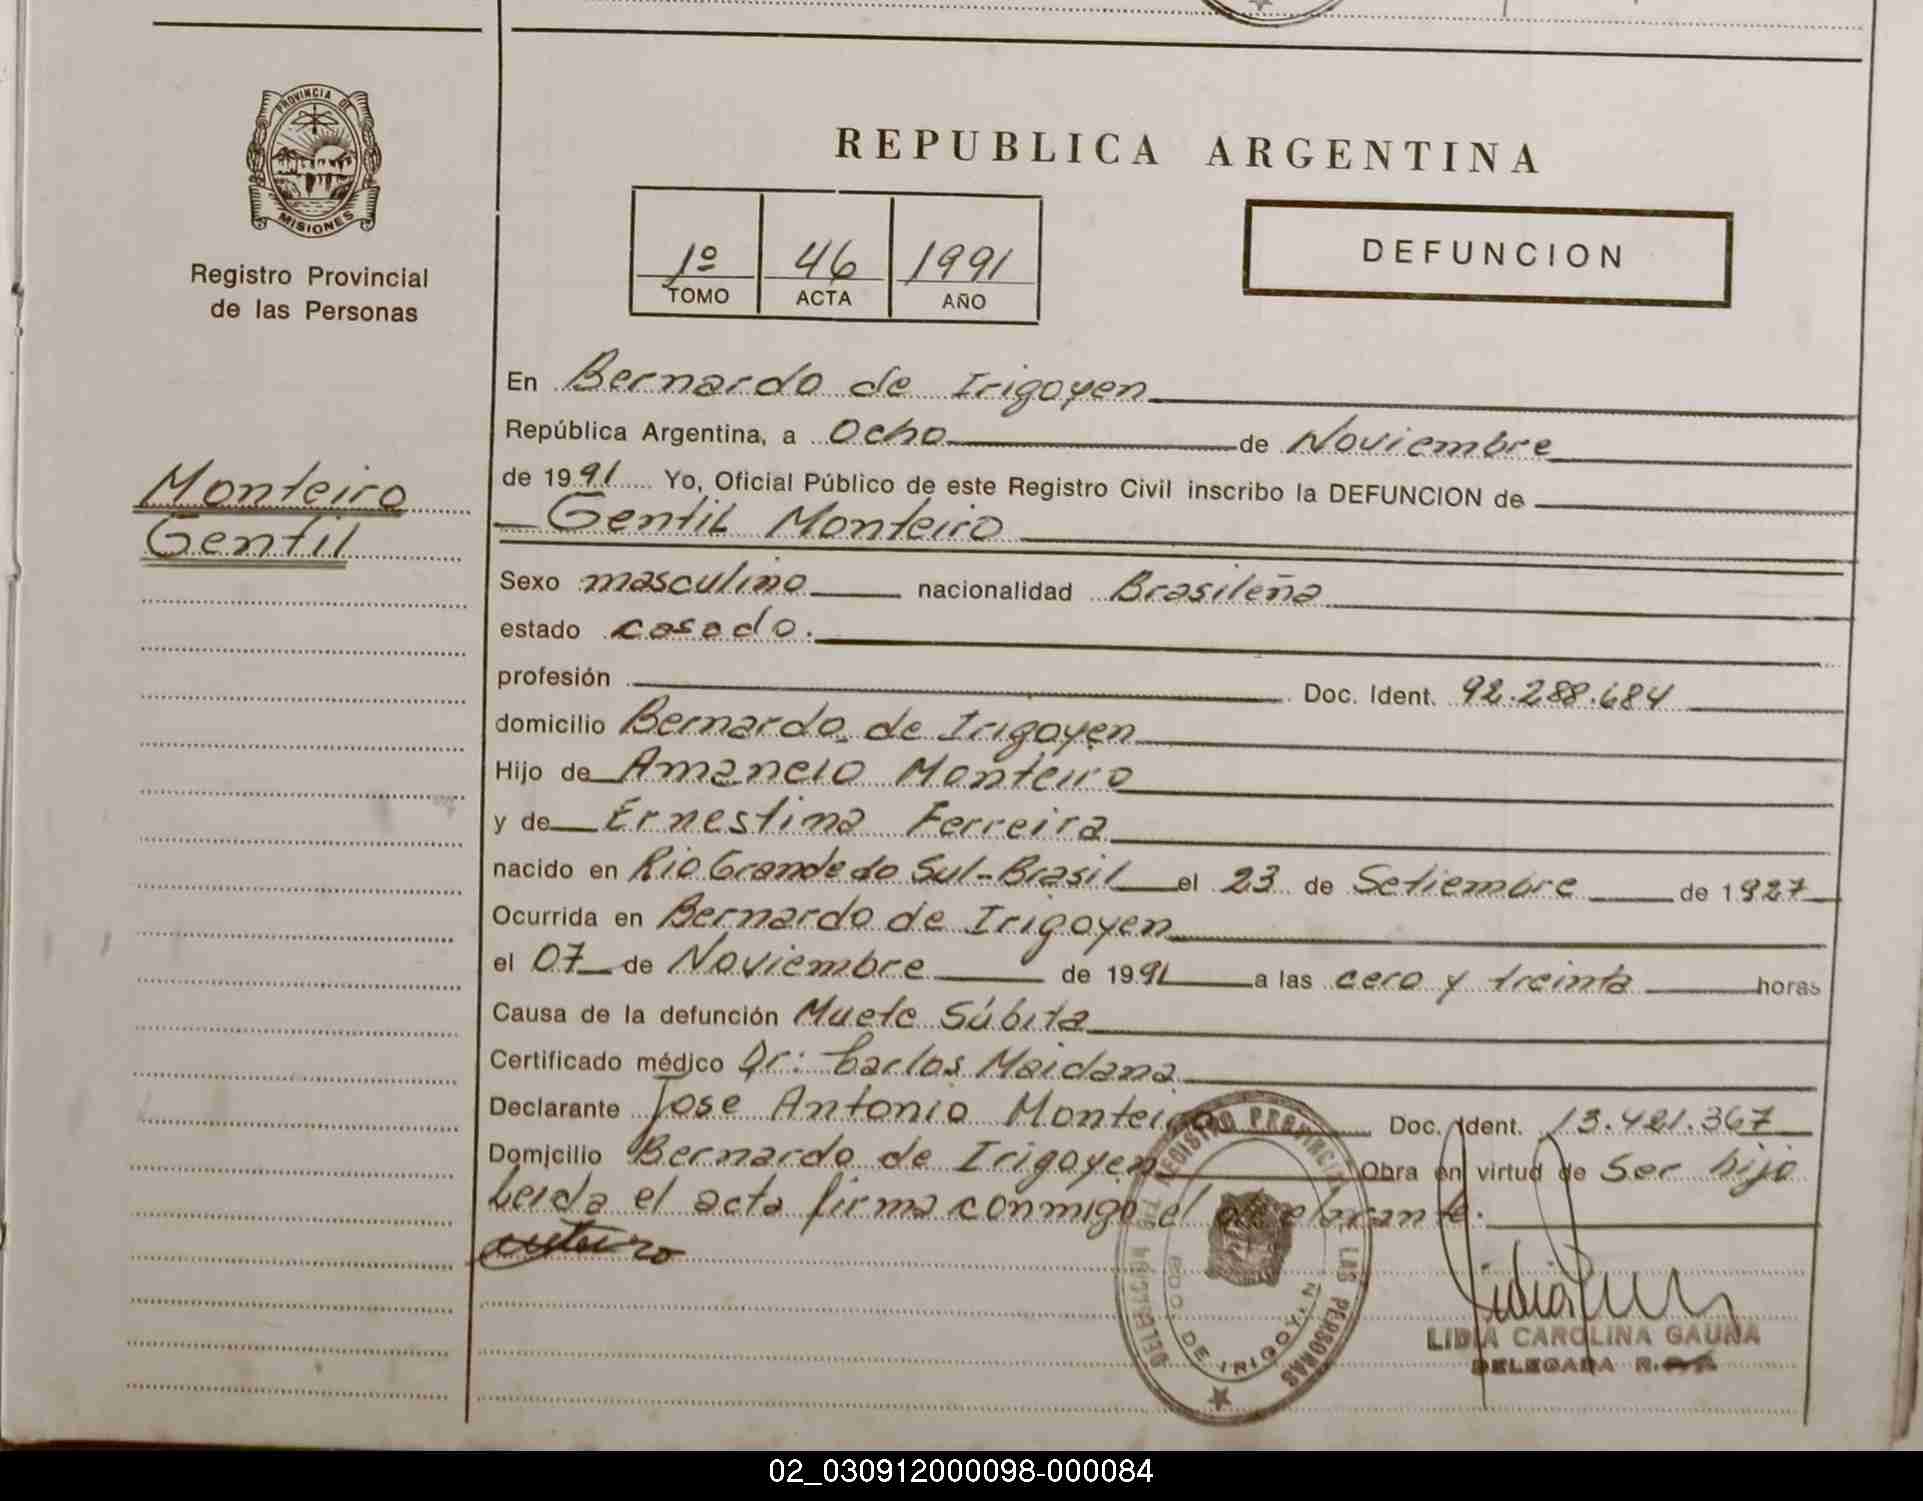 PROVINCIA DE
MISIONES
Registro Provincial
de las Personas
Monteiro
Gentil
REPUBLICA ARGENTINA
1º 46 1991
TOMO ACTA AÑO
DEFUNCION
En Bernardo de Irigoyen
República Argentina, a Ocho de Noviembre
de 1991 Yo, Oficial Público de este Registro Civil inscribo la DEFUNCION de
Gentil Monteiro
Sexo masculino nacionalidad Brasileña
estado casado.
profesión Doc. Ident. 92.288.684
domicilio Bernardo de Irigoyen
Hijo de Amancio Monteiro
y de Ernestina Ferreira
nacido en Rio Grande do Sul-Brasil el 23 de Setiembre de 1927
Ocurrida en Bernardo de Irigoyen
el 07 de Noviembre de 1991 a las cero y treinta horas
Causa de la defunción Muete Súbita
Certificado médico Dr: Carlos Maidana
Declarante Jose Antonio Monteiro Doc. Ident. 13.421.367
Domicilio Bernardo de Irigoyen Obra en virtud de Ser hijo
Leida el acta firma conmigo el declarante.
REGISTRO PROVINCIAL DE LAS PERSONAS
DE IRIGOYEN
LIDIA CAROLINA GAUNA
DELEGADA
02_030912000098-000084